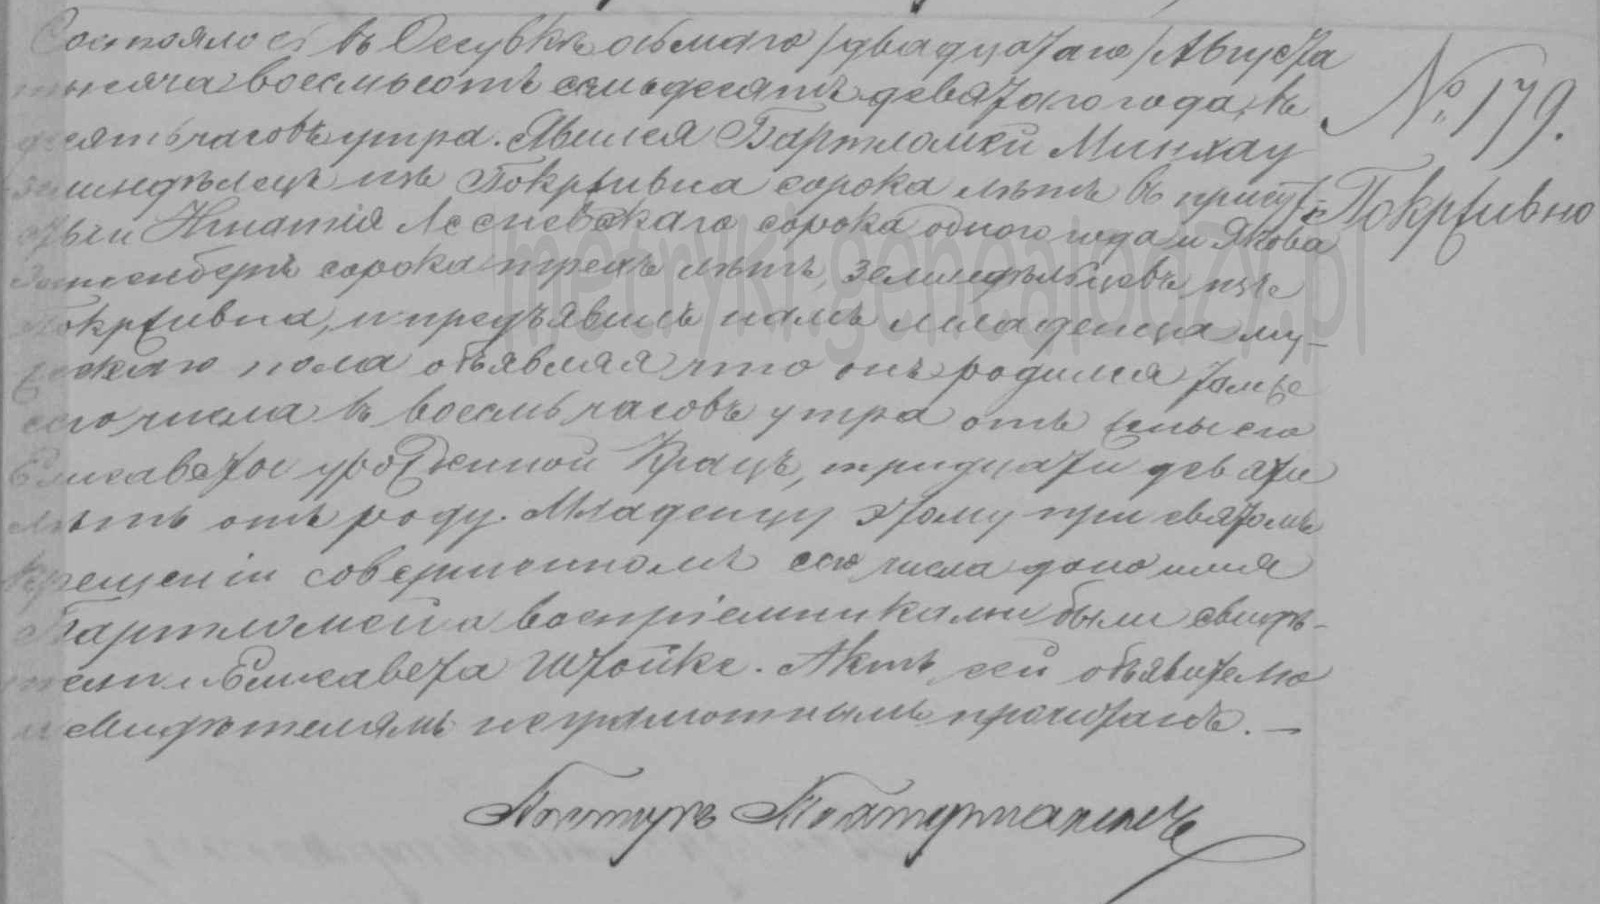 Состоялось въ Осувкѣ осьмаго /двадцатаго/ Августа
тысяча восемьсотъ семьдесятъ девятаго года, въ
десять часовъ утра. Явился Бартломей Минхау
земледѣлецъ изъ Покржывна сорока лѣтъ въ присут-
ствіи Игнатія Лесневскаго сорока одного года и Якова
сорока трехъ лѣтъ, земледѣльцевъ изъ
Покржывна, и предъявилъ намъ младенца му-
жескаго пола объявляя что онъ родился тамже
сего числа въ восемь часовъ утра отъ жены его
Елисаветы урожденной Крацъ, тридцати девяти
лѣтъ отъ роду. Младенцу этому при святомъ
крещеніи совершенномъ сего числа дано имя
Бартломей а воспріемниками были свидѣ-
тели и Елисавета Штойке. Актъ сей объявителю
и свидѣтелямъ неграмотнымъ прочитанъ. —
Пасторъ
№ 179.
Покржывно
metryki.genealodzy.pl